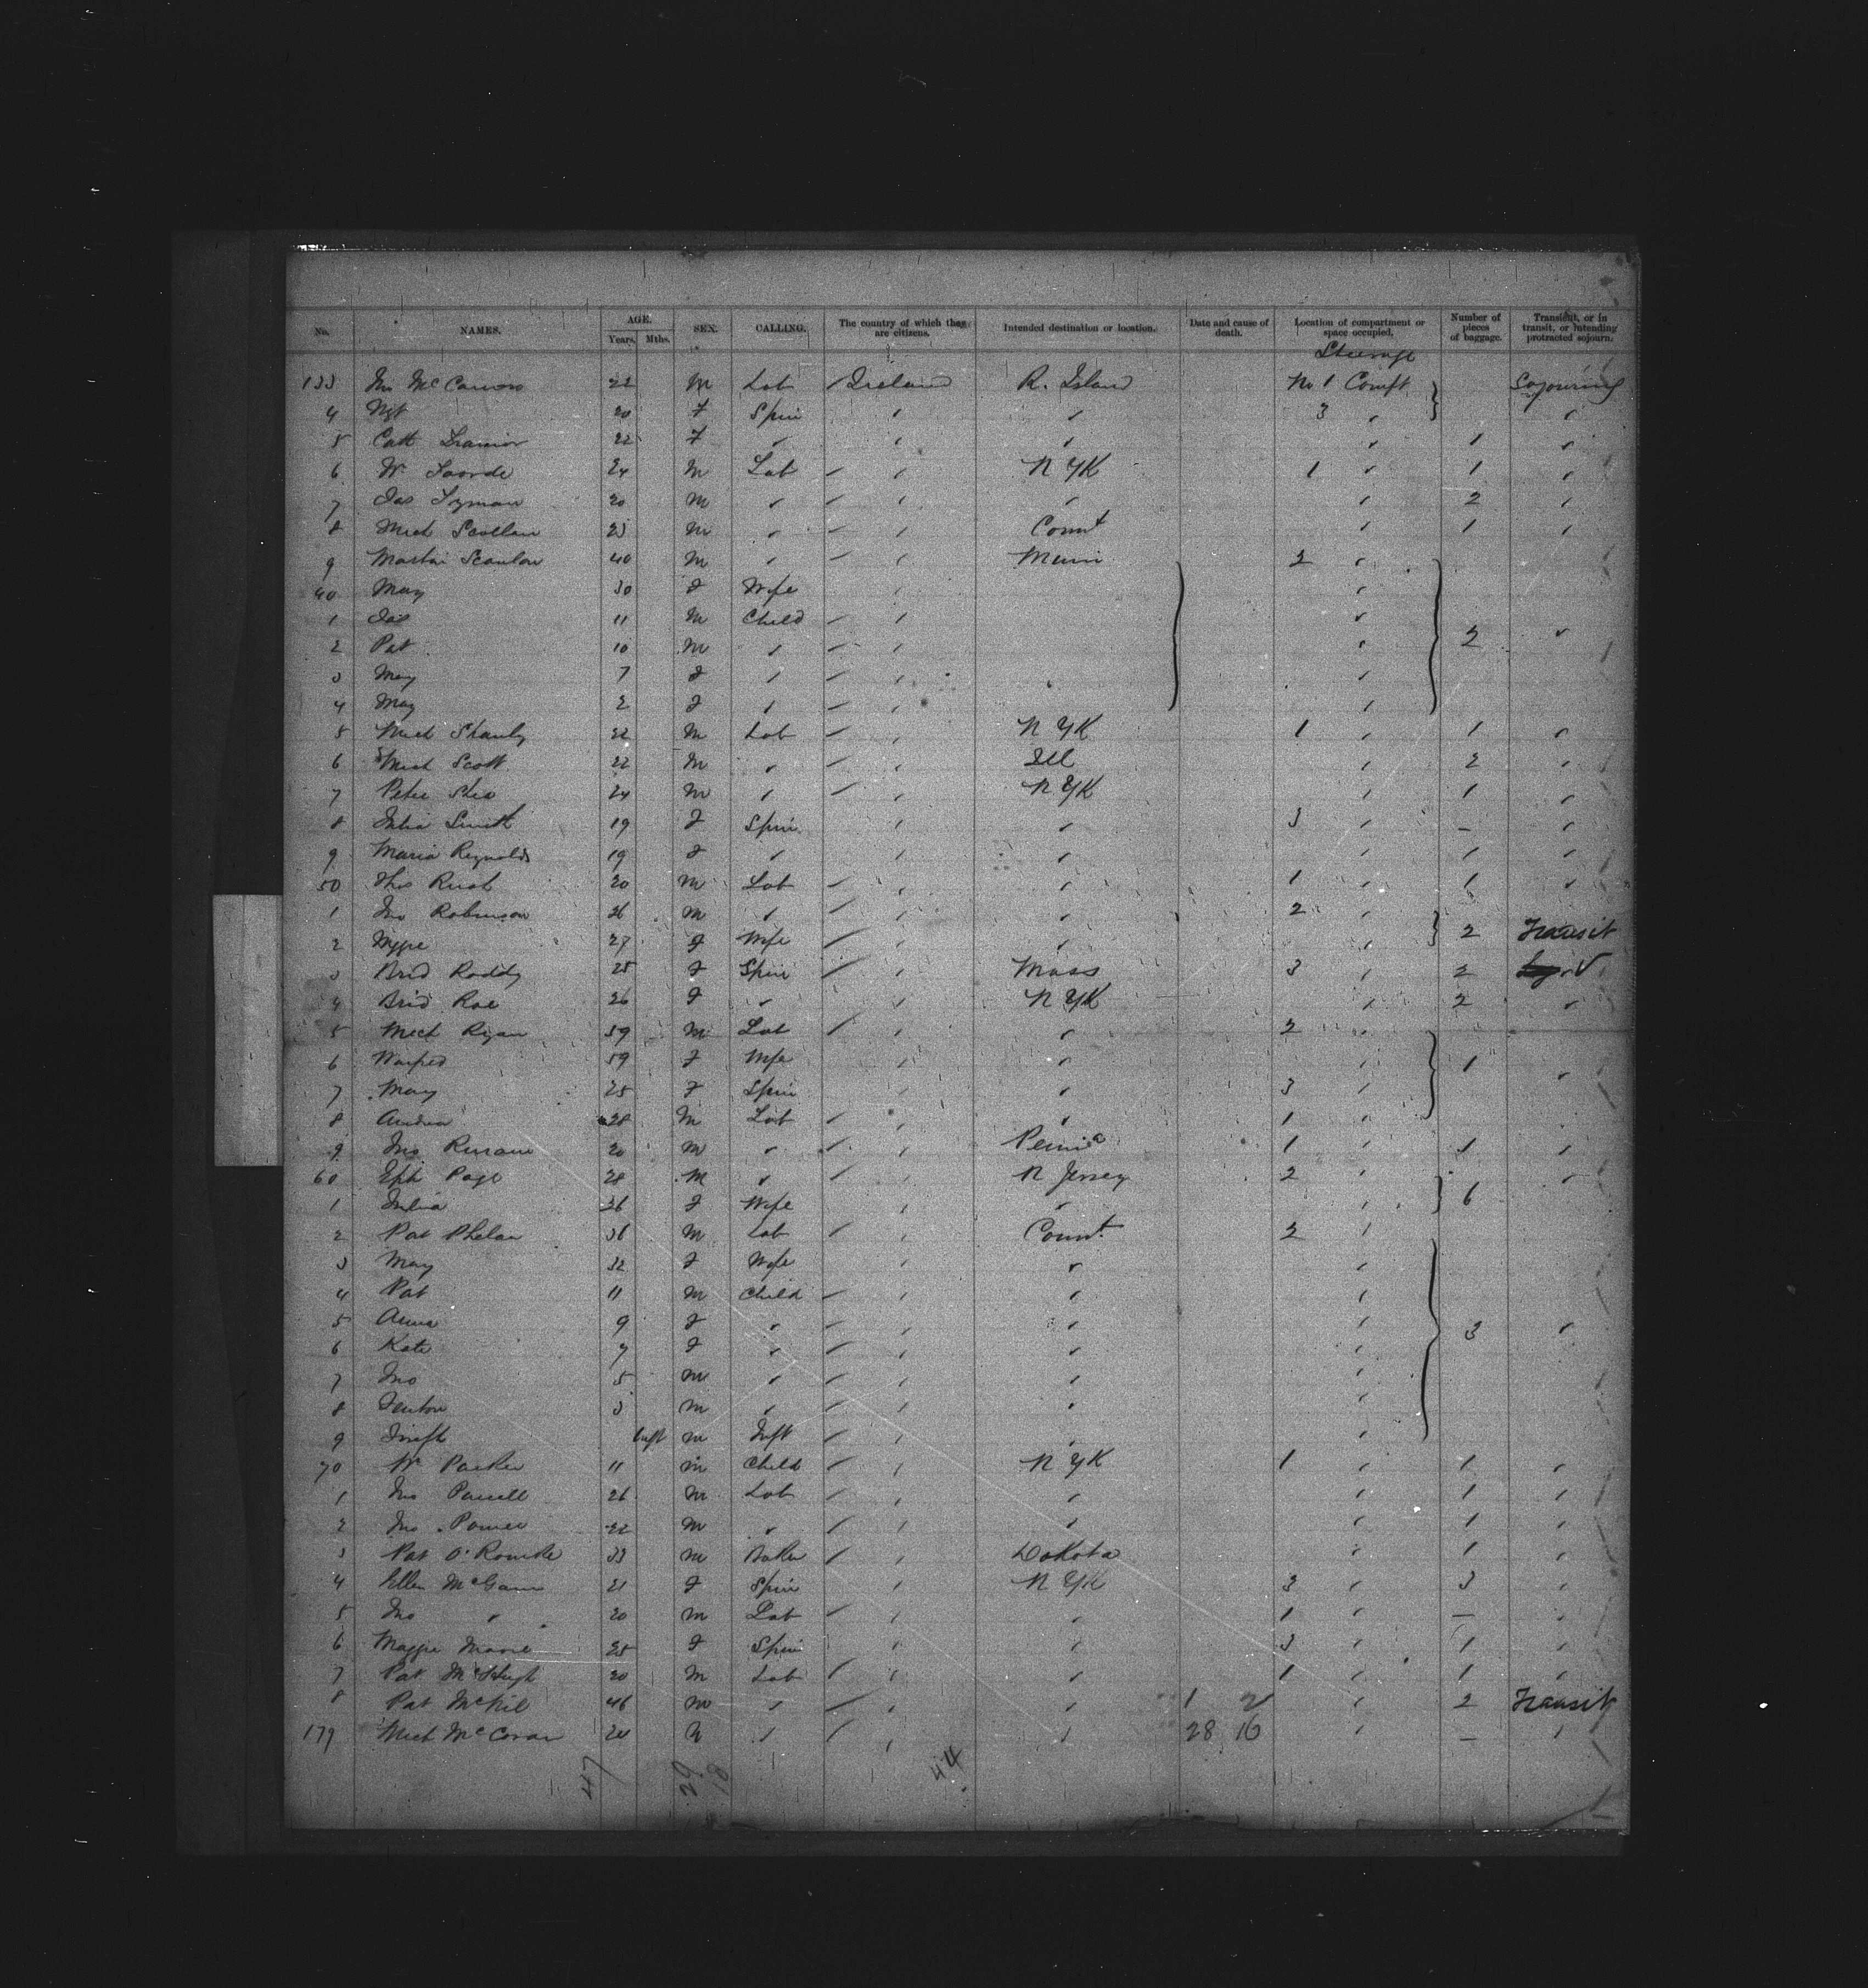 No. NAMES. AGE. Years. Mths. SEX. CALLING. The country of which they are citizens. Intended destination or location. Date and cause of death. Location of compartment or space occupied. Number of pieces of baggage. Transient, or in transit, or intending protracted sojourn.
Steerage
133 Jno 22 M Lab Ireland R. Island No 1 Compt Sojourning
4 Mgt 20 F Spin " " 3 " "
5 Cath 22 F " " " " 1 "
6 Wm 24 M Lab " N YK 1 " 1 "
7 Jas Lyman 20 M " " " " 2 "
8 Mich Scollan 23 M " " Connt " 1 "
9 Martin Scanlon 40 M " " 2 "
40 Mary 30 F Wife " "
1 Jas 11 M Child " "
2 Pat 10 M " " " 2 "
3 May 7 F " " "
4 May 2 F " " "
5 Mich Stanly 22 M Lab " N YK 1 " 1 "
6 Mich Scott 22 M " " Ill " 2 "
7 Peter Shea 24 M " " N YK " 1 "
8 Julia Smith 19 F Spin " " 3 " — "
9 Maria Reynolds 19 F " " " " 1 "
50 Thos Rush 20 M Lab " " 1 " 1 "
1 Jno Robinson 26 M " " " 2 "
2 27 F Wife " " " 2 Transit
3 Brid Roddy 25 F Spin " Mass 3 " 2 "
4 Brid Roe 26 F " " N YK " 2 "
5 Mich Ryan 59 M Lab " " 2 "
6 Winfred 59 F Wife " " " 1 "
7 Mary 25 F Spin " " 3 "
8 Andrew 28 M Lab " " 1 "
9 Jno 20 M " " Penna 1 " 1 "
60 Eph Page 28 M " " N Jersey 2 " "
1 Julia 26 F Wife " " " 6
2 Pat Phelan 36 M Lab " Connt. 2 "
3 Mary 32 F Wife " " "
4 Pat 11 M Child " " "
5 Anna 9 F " " " " 3 "
6 Kate 7 F " " " "
7 Jno 5 M " " " "
8 Fenton 3 M " " " "
9 Joseph Inft M Inft " " "
70 Wm Parker 11 M Child " N YK 1 " 1 "
1 Jno Purcell 26 M Lab " " " 1 "
2 Jno Power 22 M " " " " 1 "
3 Pat O'Rourke 33 M Baker " Dakota " 1 "
4 Ellen McGann 21 F Spin " N YK 3 " 3 "
5 Jno " 20 M Lab " " 1 " — "
6 Maggie Moore 25 F Spin " " 3 " 1 "
7 Pat McHugh 20 M Lab " " 1 " 1 "
8 Pat 46 M " " " 1 2 " 2 Transit
179 Mich 24 M " " " 28 16 " — "
47 29 18 44